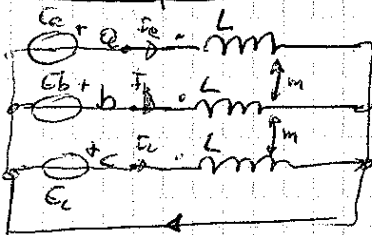 Ea + a Ia L
m
Eb + b Ib L
m
Ec + c Ic L